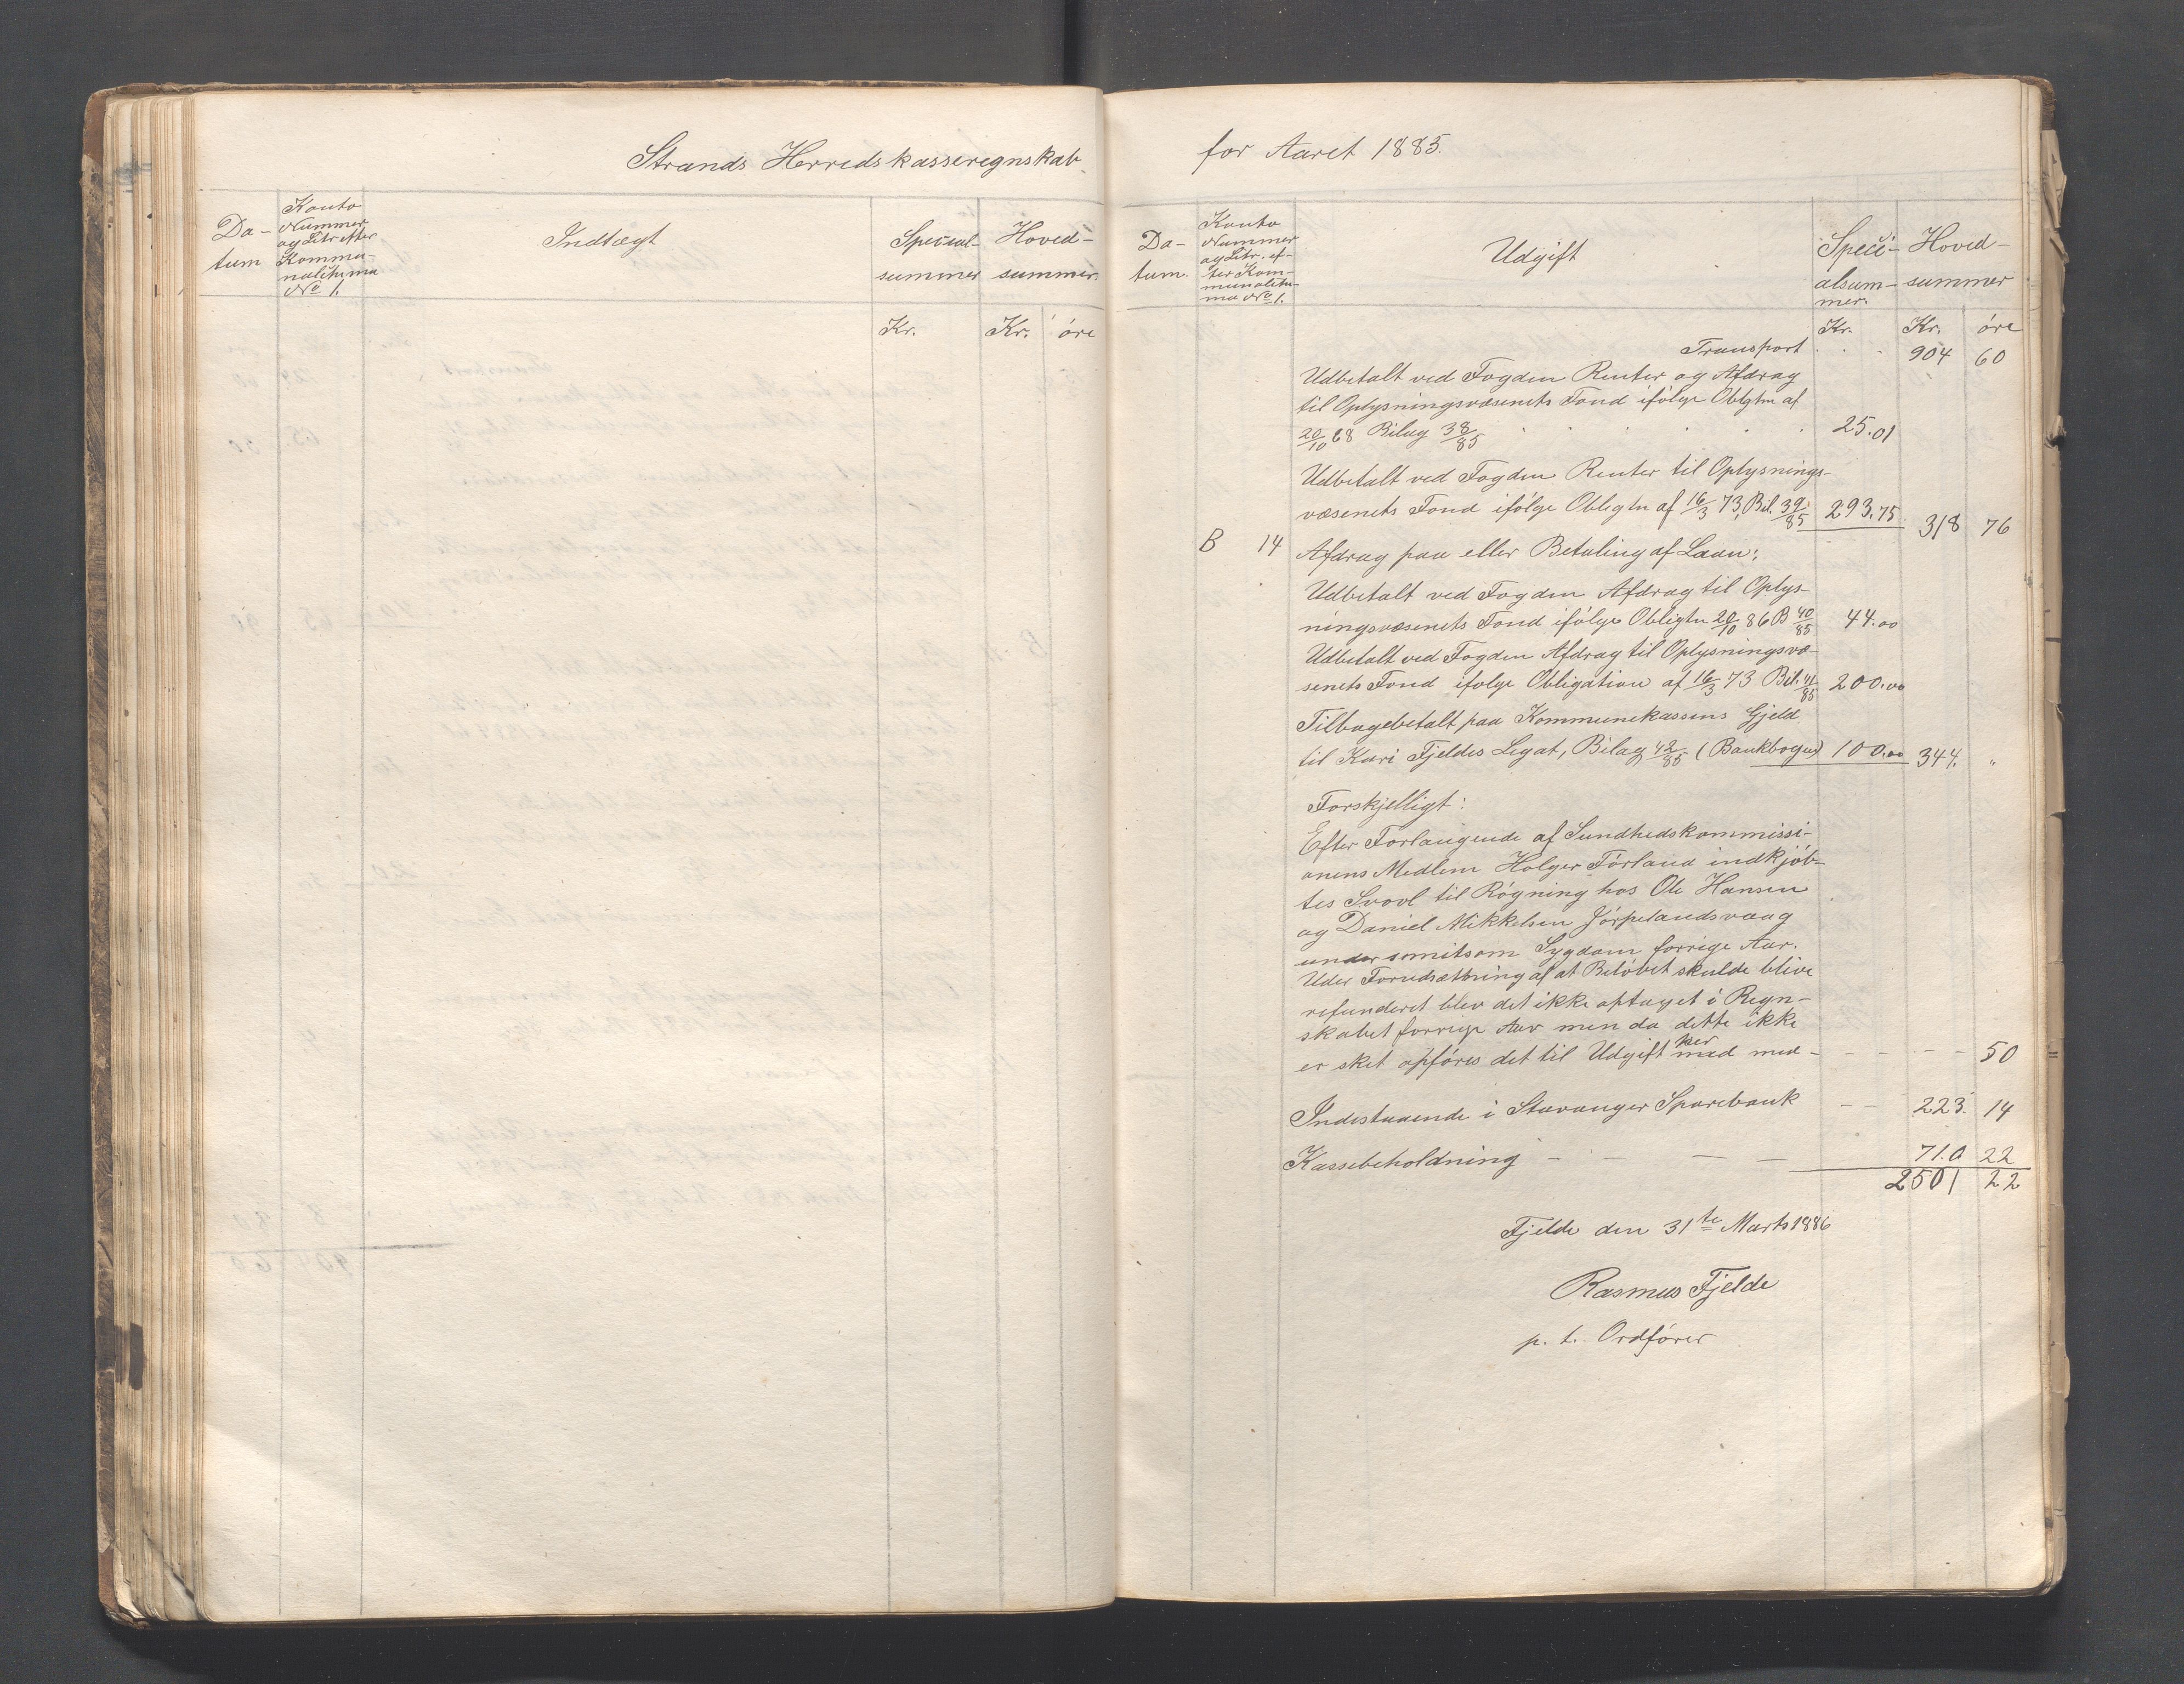 Strands Herredskasseregnskab
Da-
tum
Konto
Nummer
og Litr. efter
Kommu-
nalskema
No 1.
Indtægt
Special-
summer
Hoved-
summer.
Kr.
Kr. øre
for Aaret 1885.
Da-
tum.
Konto
Nummer
og Litr. ef-
ter Kom-
munalske-
ma No 1.
Udgift
Speci-
alsum-
mer.
Hoved-
summer
Kr. Kr. øre
Transport . . . 904 60
Udbetalt ved Fogden Renter og Afdrag
til Oplysningsvæsenets Fond ifølge Oblgtn af
20/10 68 Bilag 38/85 . . . . . 25.01
Udbetalt ved Fogden Renter til Oplysnings-
væsenets Fond ifølge Obligtn af 16/3 73, Bil. 39/85 293.75 318 76
B 14 Afdrag paa eller Betaling af Laan:
Udbetalt ved Fogden Afdrag til Oplys-
ningsvæsenets Fond ifølge Obligtn 20/10 86 B 40/85 44.00
Udbetalt ved Fogden Afdrag til Oplysningsvæ-
senets Fond ifølge Obligation af 16/3 73 Bil. 41/85 200.00
Tilbagebetalt paa Kommunekassens Gjeld
til Kari Fjeldes Legat, Bilag 42/85 (Bankbogen) 100.00 344. "
Forskjelligt:
Efter Forlangende af Sundhedskommissi-
onens Medlem Holger Førland indkjøb-
tes Svovl til Røgning hos Ole Hansen
og Daniel Mikkelsen Jørpelandsvaag
under smitsom Sygdom forrige Aar.
Uder Forudsætning af at Beløbet skulde blive
refunderet blev det ikke optaget i Regn-
skabet forrige Aar men da dette ikke
er sket opføres det til Udgift her med med - - - - - 50
Indestaaende i Stavanger Sparebank - - 223. 14
Kassebeholdning - - - - 710 22
2501 22
Fjelde den 31te Marts 1886
Rasmus Fjelde
p. t. Ordfører